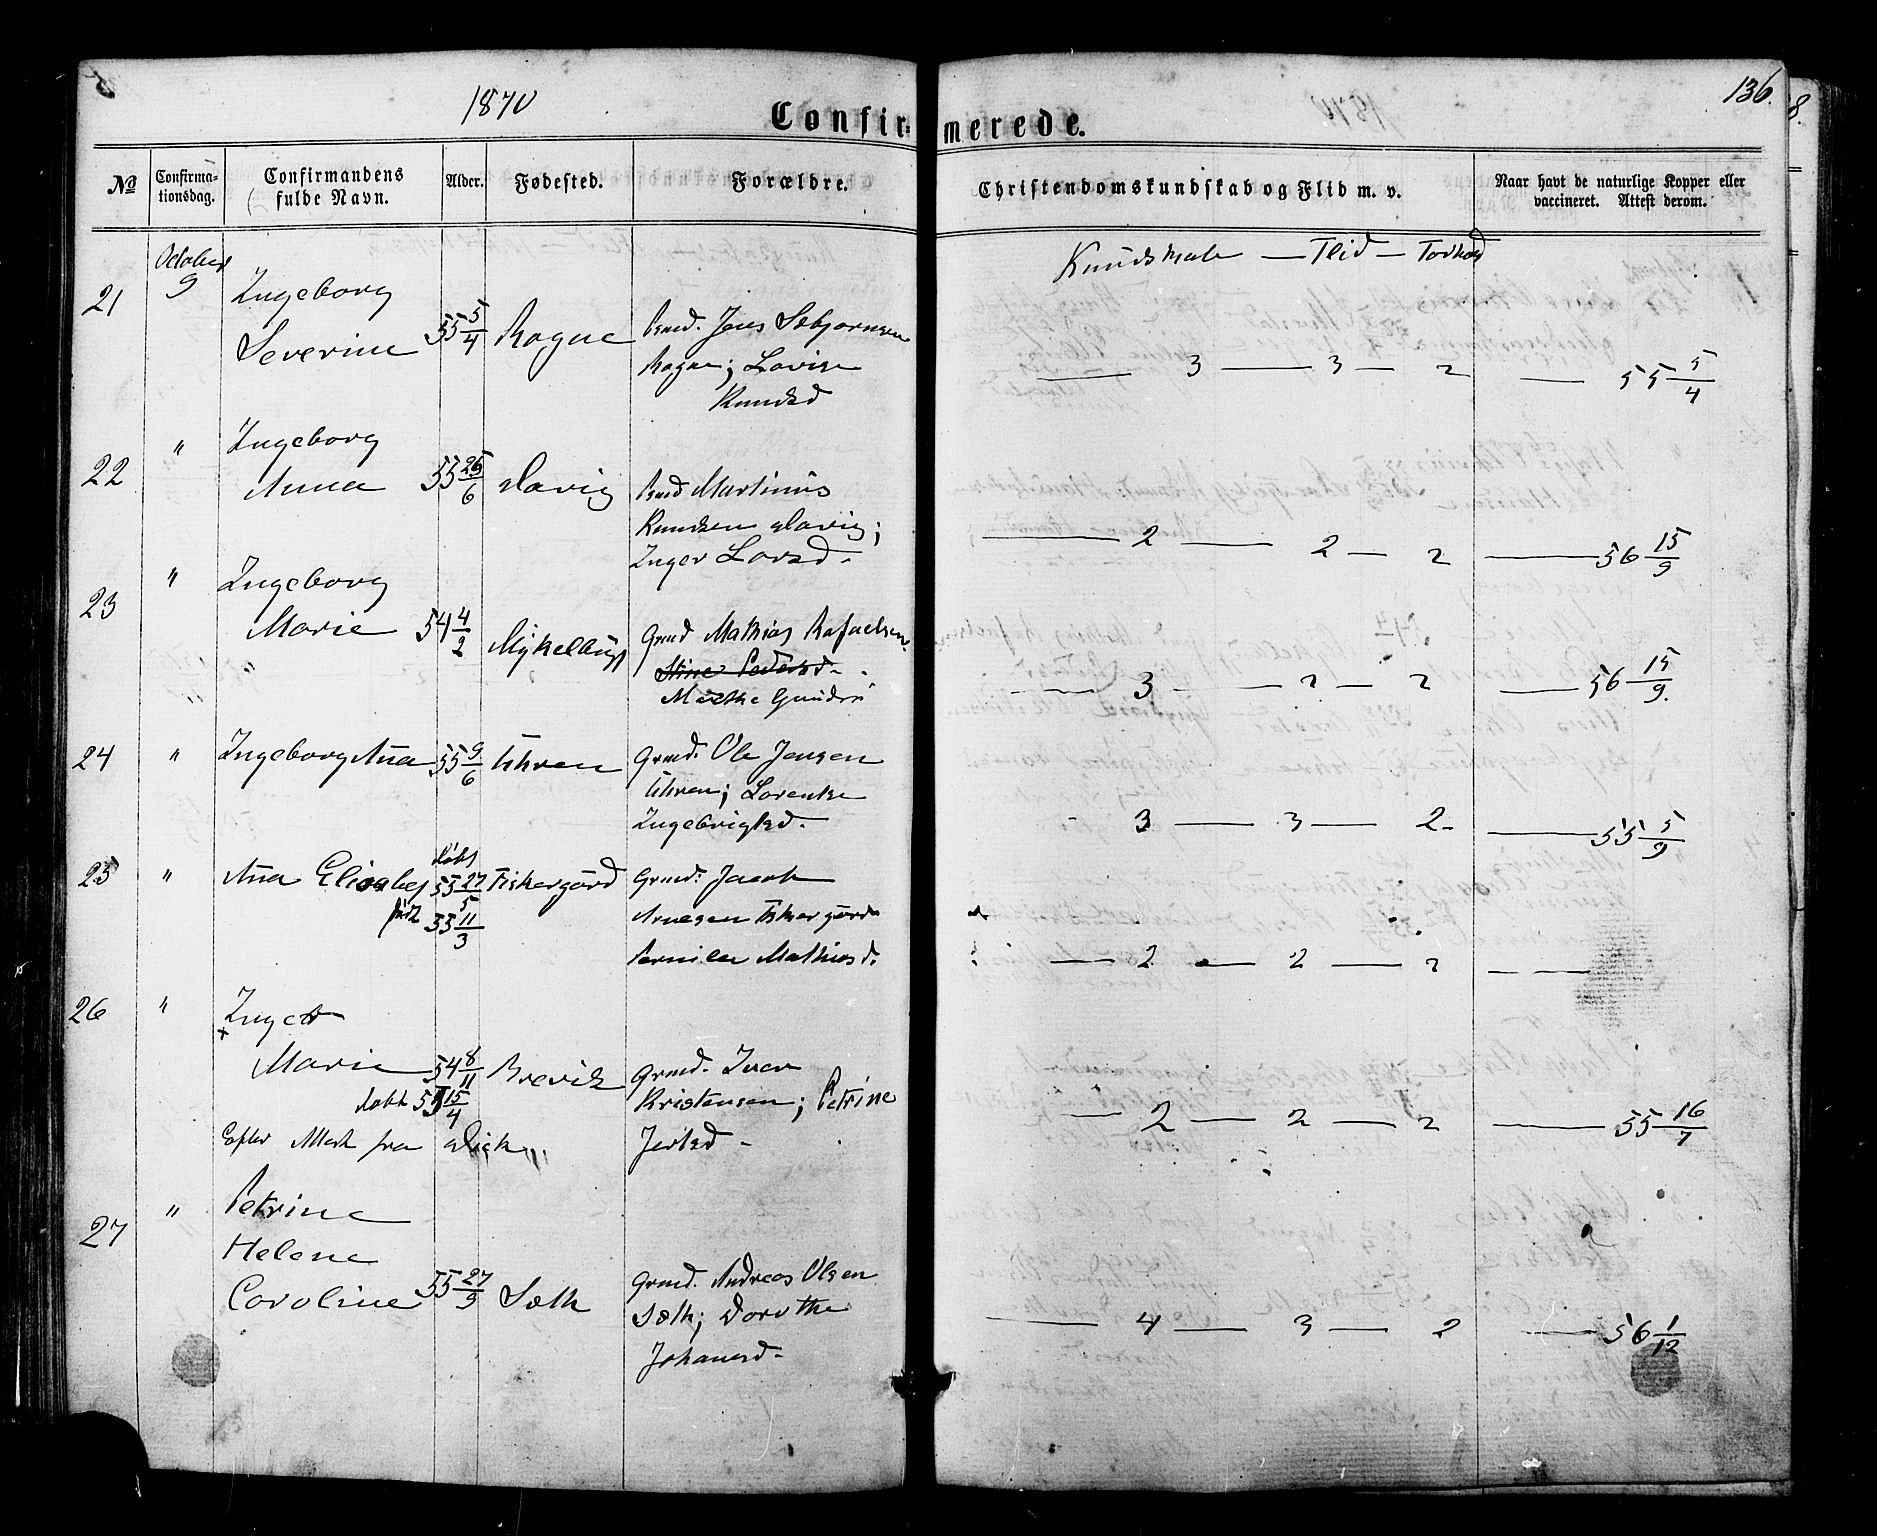 1870
136.
Confir-merede.
No
Confirma-tionsdag.
Confirmandens fulde Navn.
Alder.
Fødested.
Forældre.
Christendomskundskab og Flid m. v.
Naar havt de naturlige Kopper eller vaccineret. Attest derom.
October 9
Kundskab — Flid — Forhold
21
Ingeborg
Severine
55 5/4
Rogne
Gmd. Jens Sebjørnsen
Rogne; Lovise
Knudsd
— 3 — 3 — 2
— 55 5/4
22
"
Ingeborg
Anna
55 25/6
Slavig
Gmd Martinus
Knudsen Slavig;
Inger Larsd.
— 2 — 2 — 2
— 56 15/9
23
"
Ingeborg
Marie
54 4/2
Mykelbust
Gmd Mathias Rafaelsen
Stine Pedersd.
Marthe
— 3 — 2 — 2
— 56 15/9.
24
"
Ingeborg Ana
55 9/6
Uhren
Grmd. Ole Jensen
Uhren; Lorentse
Ingebrigtsd.
3 — 3 — 2
— 55 5/9
25
"
Ana Elisabet
døbt
55 27/5
55 11/3
Fiskergård
Grmd. Jacob
Arnesen Fiskergård
Pernille Mathiasd.
— 2 — 2 — 2
— —
26
"
Inger
Marie
54 8/11
døbt 55 15/4
Brevik
Grmd. Iver
Kristensen; Petrine
— 2 — 2 — 2
— 55 16/7
Efter Att. fra
27
"
Petrine
Helene
Caroline
55 27/9
Sæth
Grmd. Andreas Olsen
Sæth; Dorothe
Johansd.
— 4 — 3 — 2
— 56 1/12